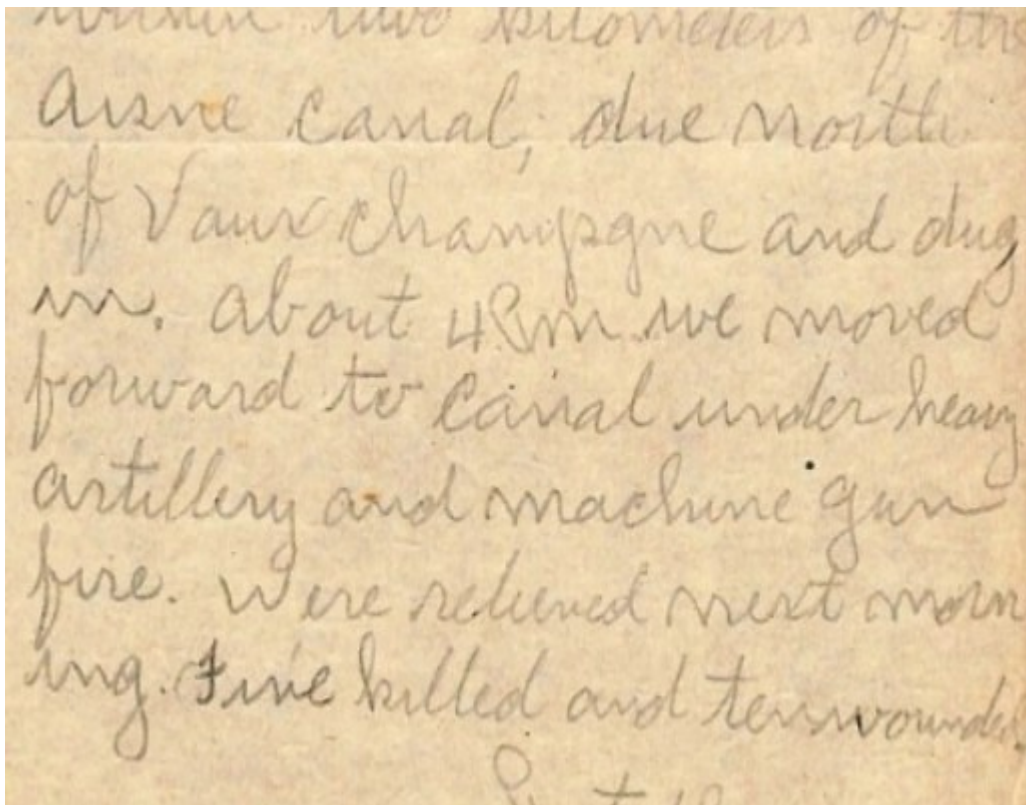 within two kilometers of the
Aisne Canal, due north
of Vaux Champgne and dug
in. About 4 Pm we moved
forward to Canal under heavy
artillery and machine gun
fire. Were relieved next morn
ing. Five killed and ten wounded.